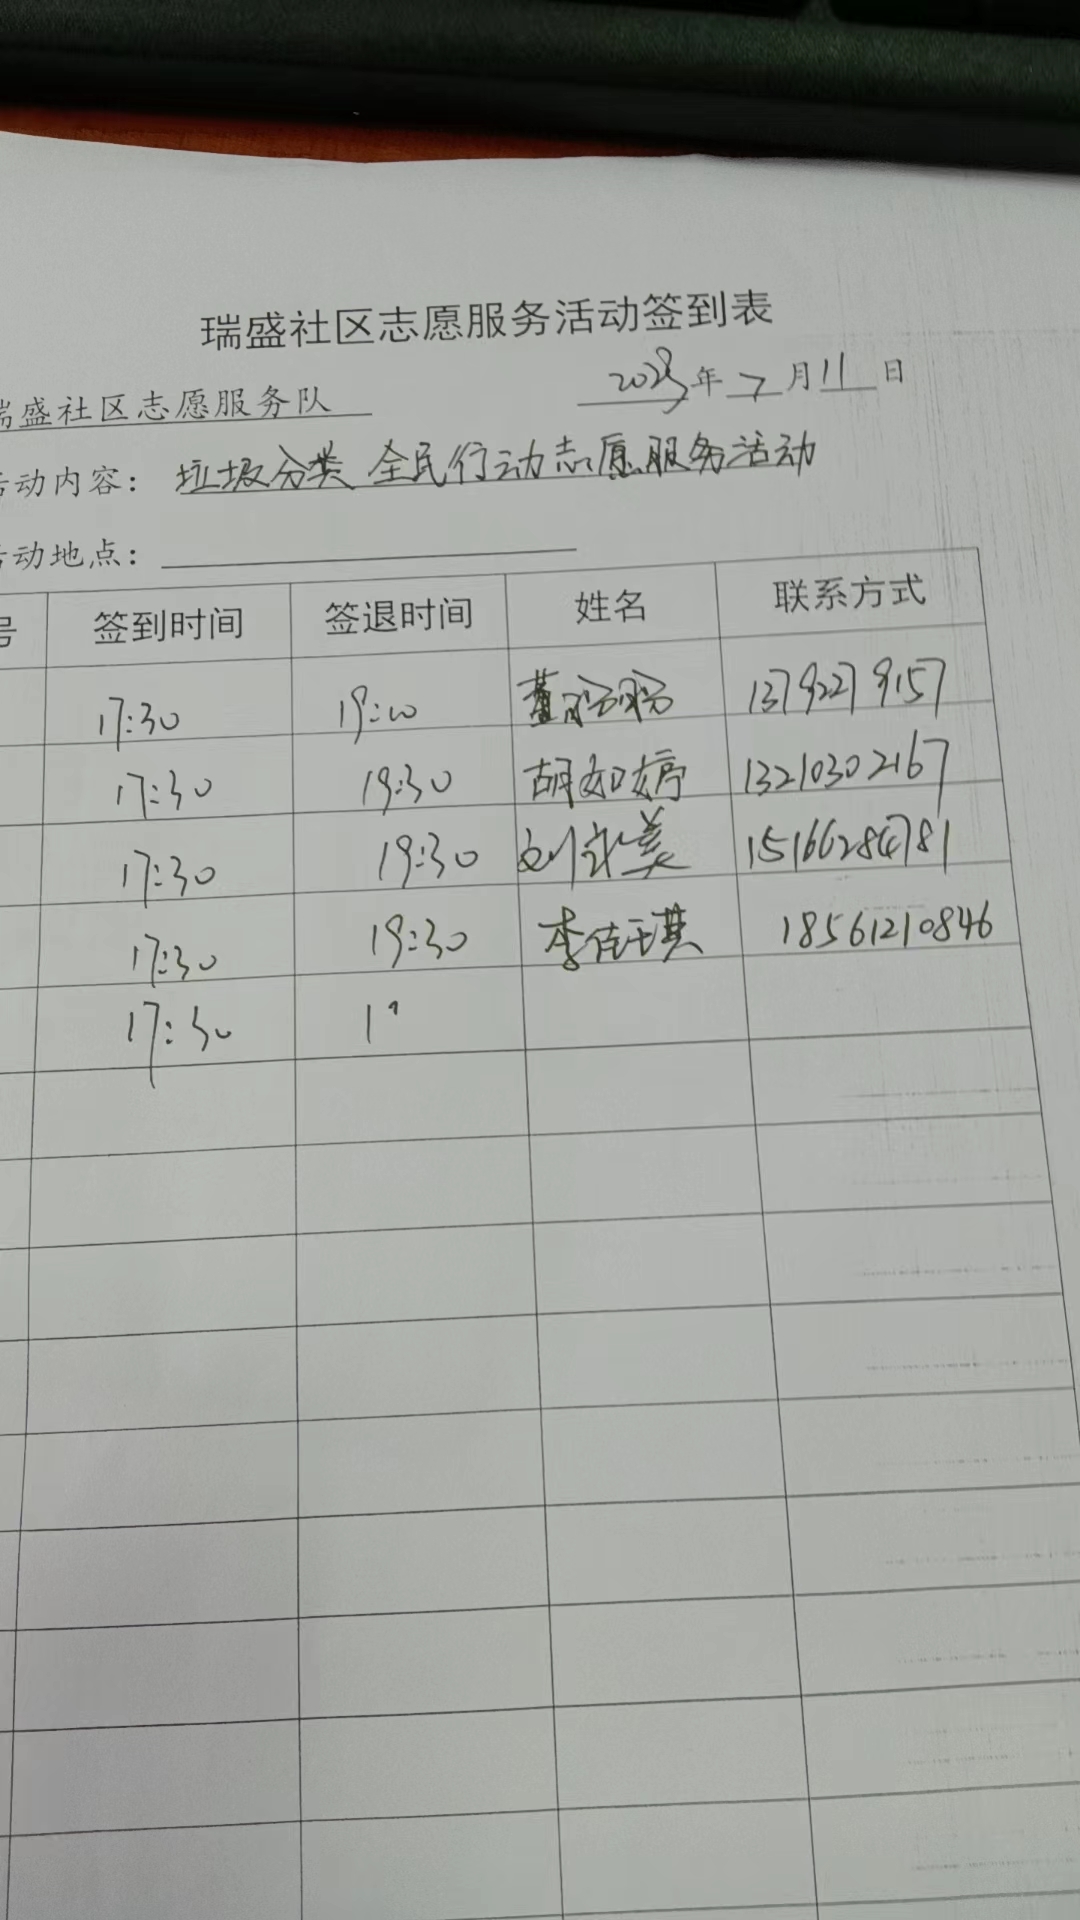 瑞盛社区志愿服务活动签到表
瑞盛社区志愿服务队 年 7 月 11 日
活动内容: 垃圾分类 全民行动志愿服务活动
活动地点:
号 签到时间 签退时间 姓名 联系方式
17:30 19:00 董 13792279157
17:30 19:30 胡如婷 13210302167
17:30 19:30 刘 美 15166284781
17:30 19:30 李佳琪 18561210846
17:30 1